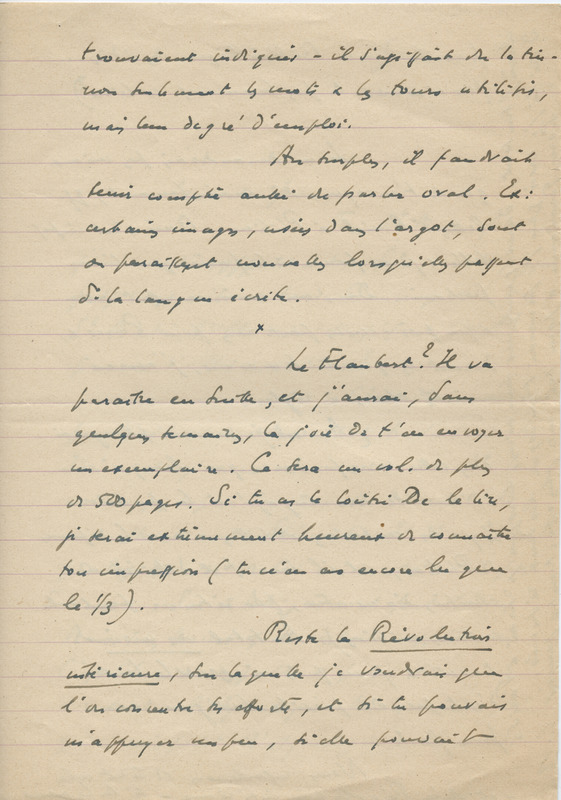 trouvaient indiqués – il s'agissait de
non seulement les mots & les tours utilisés,
mais leur degré d'emploi.
Au surplus, il faudrait
tenir compte aussi du parler oral. Ex:
certaines images, usées dans l'argot, sont
ou paraissent nouvelles lorsqu'elles passent
ds la langue écrite.
*
Le Flaubert? Il va
paraître en Suite, et j'aurai, dans
quelques semaines, la joie de t'en envoyer
un exemplaire. Ce sera un vol. de plus
de 500 pages. Si tu as le loisir De le lire,
je serai extrêmement heureux de connaître
ton impression (tu n'en as encore lu que
le 1/3).
Reste la Révolution
intérieure, sur laquelle je voudrais que
l'on concentre ses efforts, et si tu pouvais
m'appuyer un peu, si elle pouvait